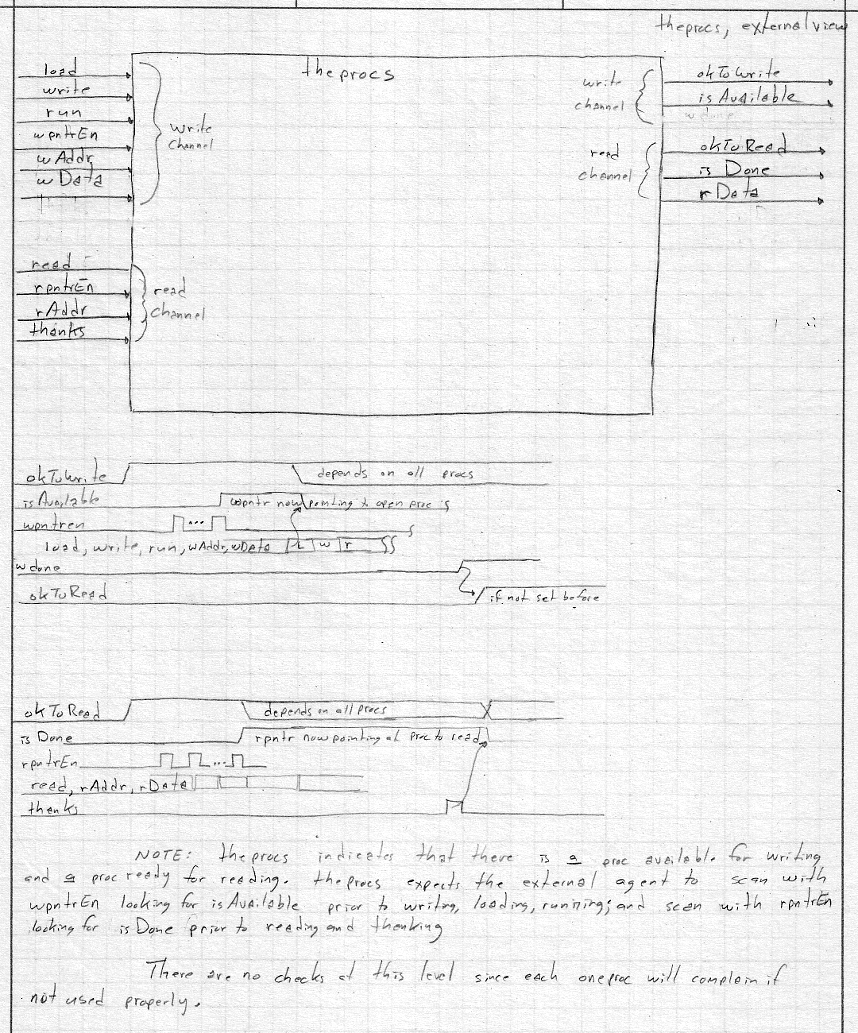 theprocs, external view
theprocs
load
write
run
wpntrEn
wAddr
wData
write
channel
read
rpntrEn
rAddr
thanks
read
channel
write
channel
okToWrite
isAvailable
wdone
read
channel
okToRead
is Done
rData
okToWrite
depends on all procs
isAvailable
wpntr now pointing to open proc
wpntren
...
load, write, run, wAddr, wData
L w r
wdone
okToRead
if not set before
okToRead
depends on all procs
is Done
rpntr now pointing at proc to read
rpntrEn
...
read, rAddr, rData
thanks
NOTE: theprocs indicates that there is a proc available for writing
and a proc ready for reading. theprocs expects the external agent to scan with
wpntrEn looking for isAvailable prior to writing, loading, running; and scan with rpntrEn
looking for isDone prior to reading and thanking
There are no checks at this level since each oneproc will complain if
not used properly.